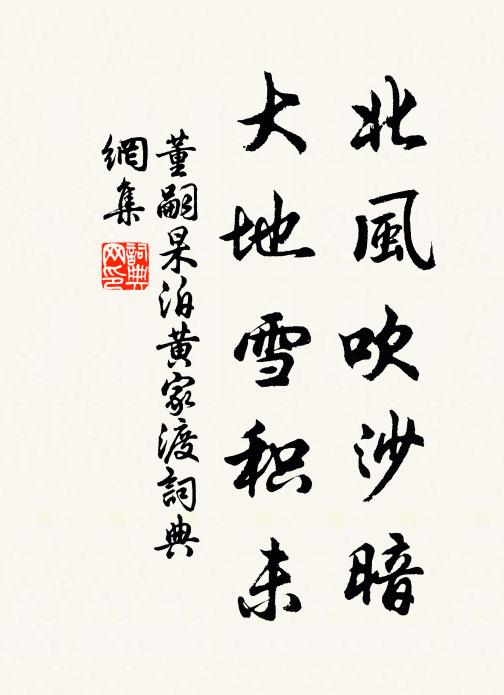 北風吹沙暗
大地雪积未
董嗣杲泊黄家渡詞典
網集
詞典
网印